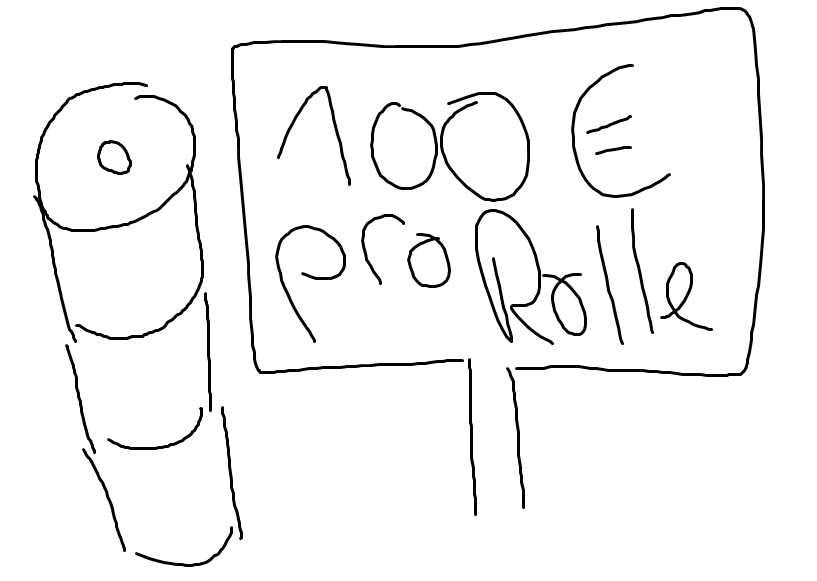 100 €
pro Rolle